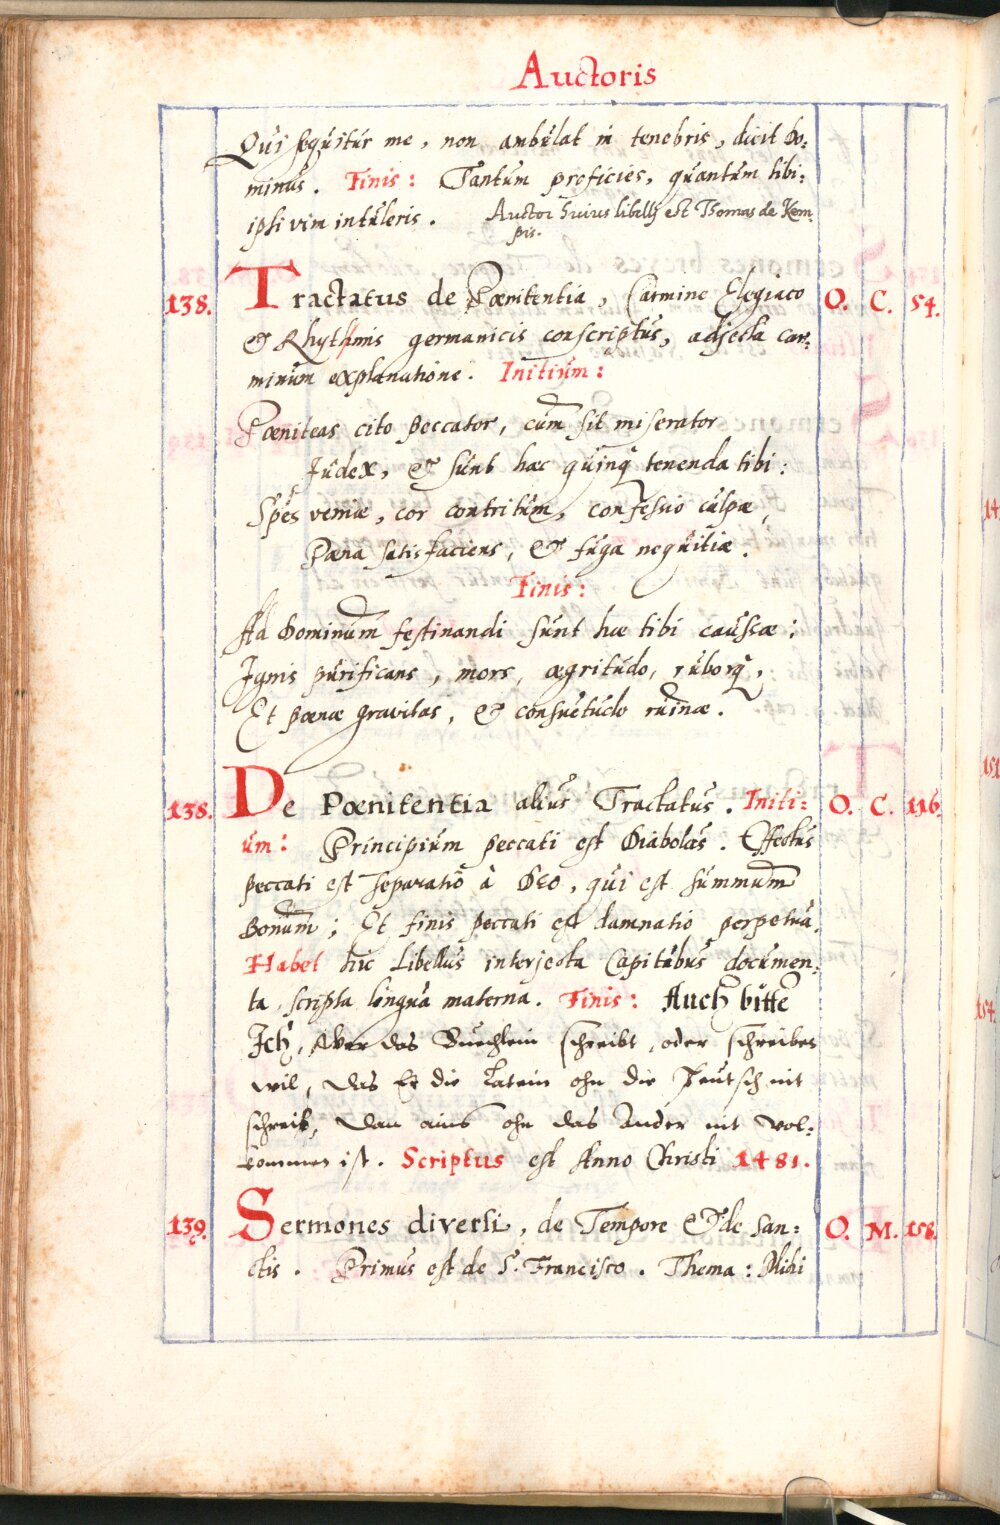 Auctoris
Qui sequitur me, non ambulat in tenebris, dicit Do:
minus. Finis: Tantum proficies, quantum tibi:
ipsi vim intuleris. Auctor huius libelli est Thomas de Kem:
pis.
138. Tractatus de Pœnitentia, Carmine Elegiaco O. C. 54.
& Rhythmis germanicis conscriptus, adjecta car:
minum explanatione. Initium:
Pœniteas cito peccator, cum sit miserator
Iudex, & sunt hæc quinq tenenda tibi:
Spes veniæ, cor contritum, confessio culpæ,
Pœna satisfaciens, & fuga nequitiæ.
Finis:
Ad Dominum festinandi sunt hæ tibi causæ:
Ignis purificans, mors, ægritudo, ruborq,
Et pœnæ gravitas, & consuetudo ruinæ.
138. De Pœnitentia alius Tractatus. Initi: O. C. 116.
um: Principium peccati est Diabolus. Effectus
peccati est separatio à Deo, qui est summum
Bonum; Et finis peccati est damnatio perpetua.
Habet hic Libellus interjecta Capitibus documen:
ta, scripta lingua materna. Finis: Auch bitte
Ich, Wer das Buechlein schreibt, oder schreiben
wil, das Er die Latein ohn die Teutsch nit
schreib, dan ains ohn das Ander nit vol:
kommen ist. Scriptus est Anno Christi 1481.
139. Sermones diversi, de Tempore & de San: O. M. 158.
ctis. Primus est de S. Francisco. Thema: Mihi
14
151
154.